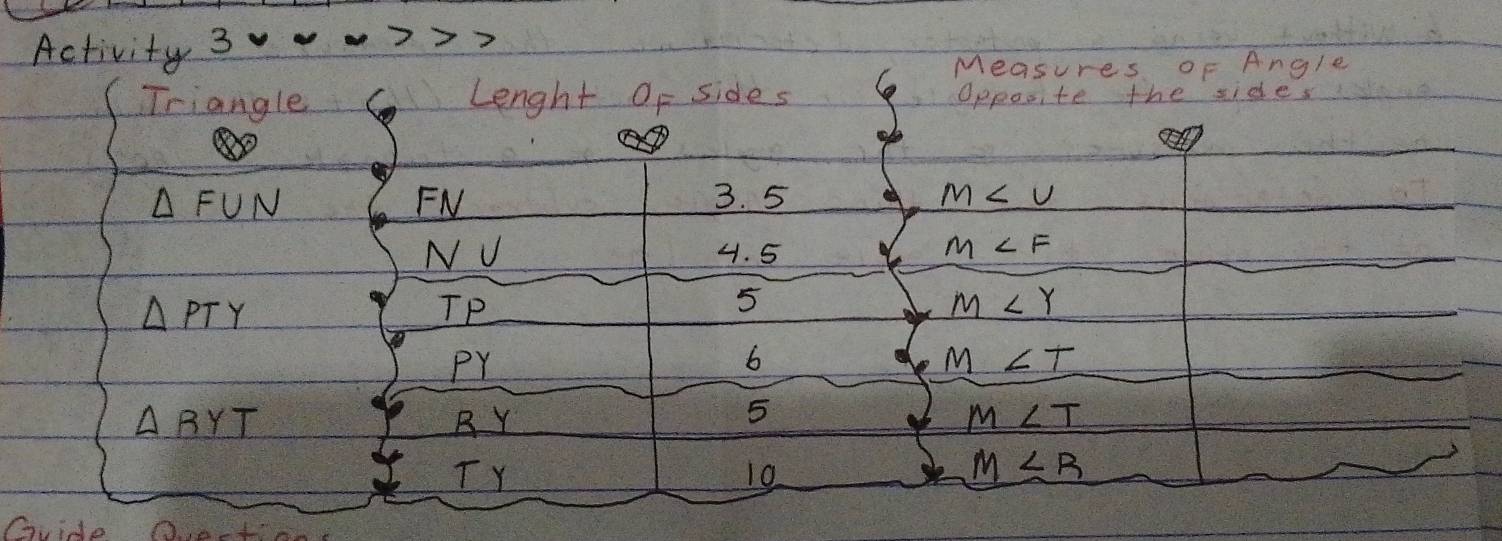 Activity 3 > > >
Triangle Lenght Of sides Measures of Angle
Opposite the sides
Δ FUN FN 3.5 M < U
NU 4.5 M < F
Δ PTY TP 5 M < Y
PY 6 M < T
Δ RYT RY 5 M < T
TY 10 M < R
Guide Questions